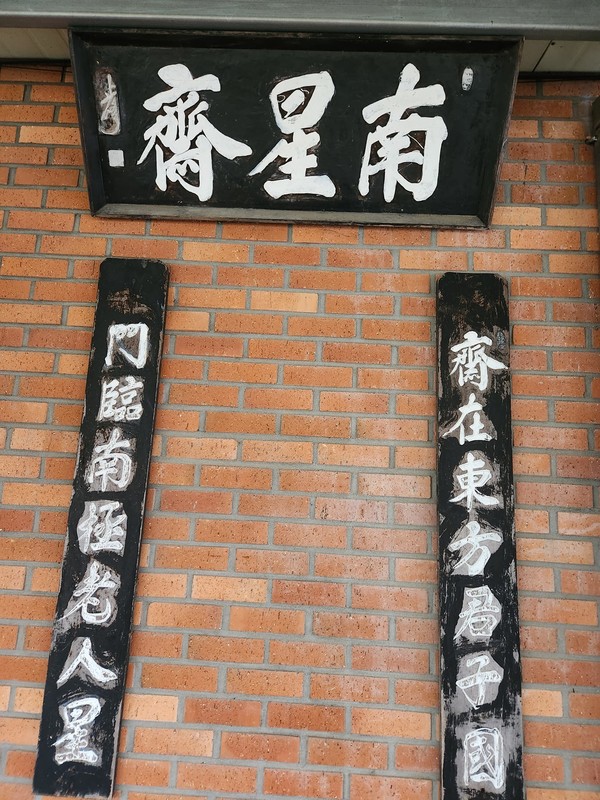 南星齋
齋在東方君子國
門臨南極老人星